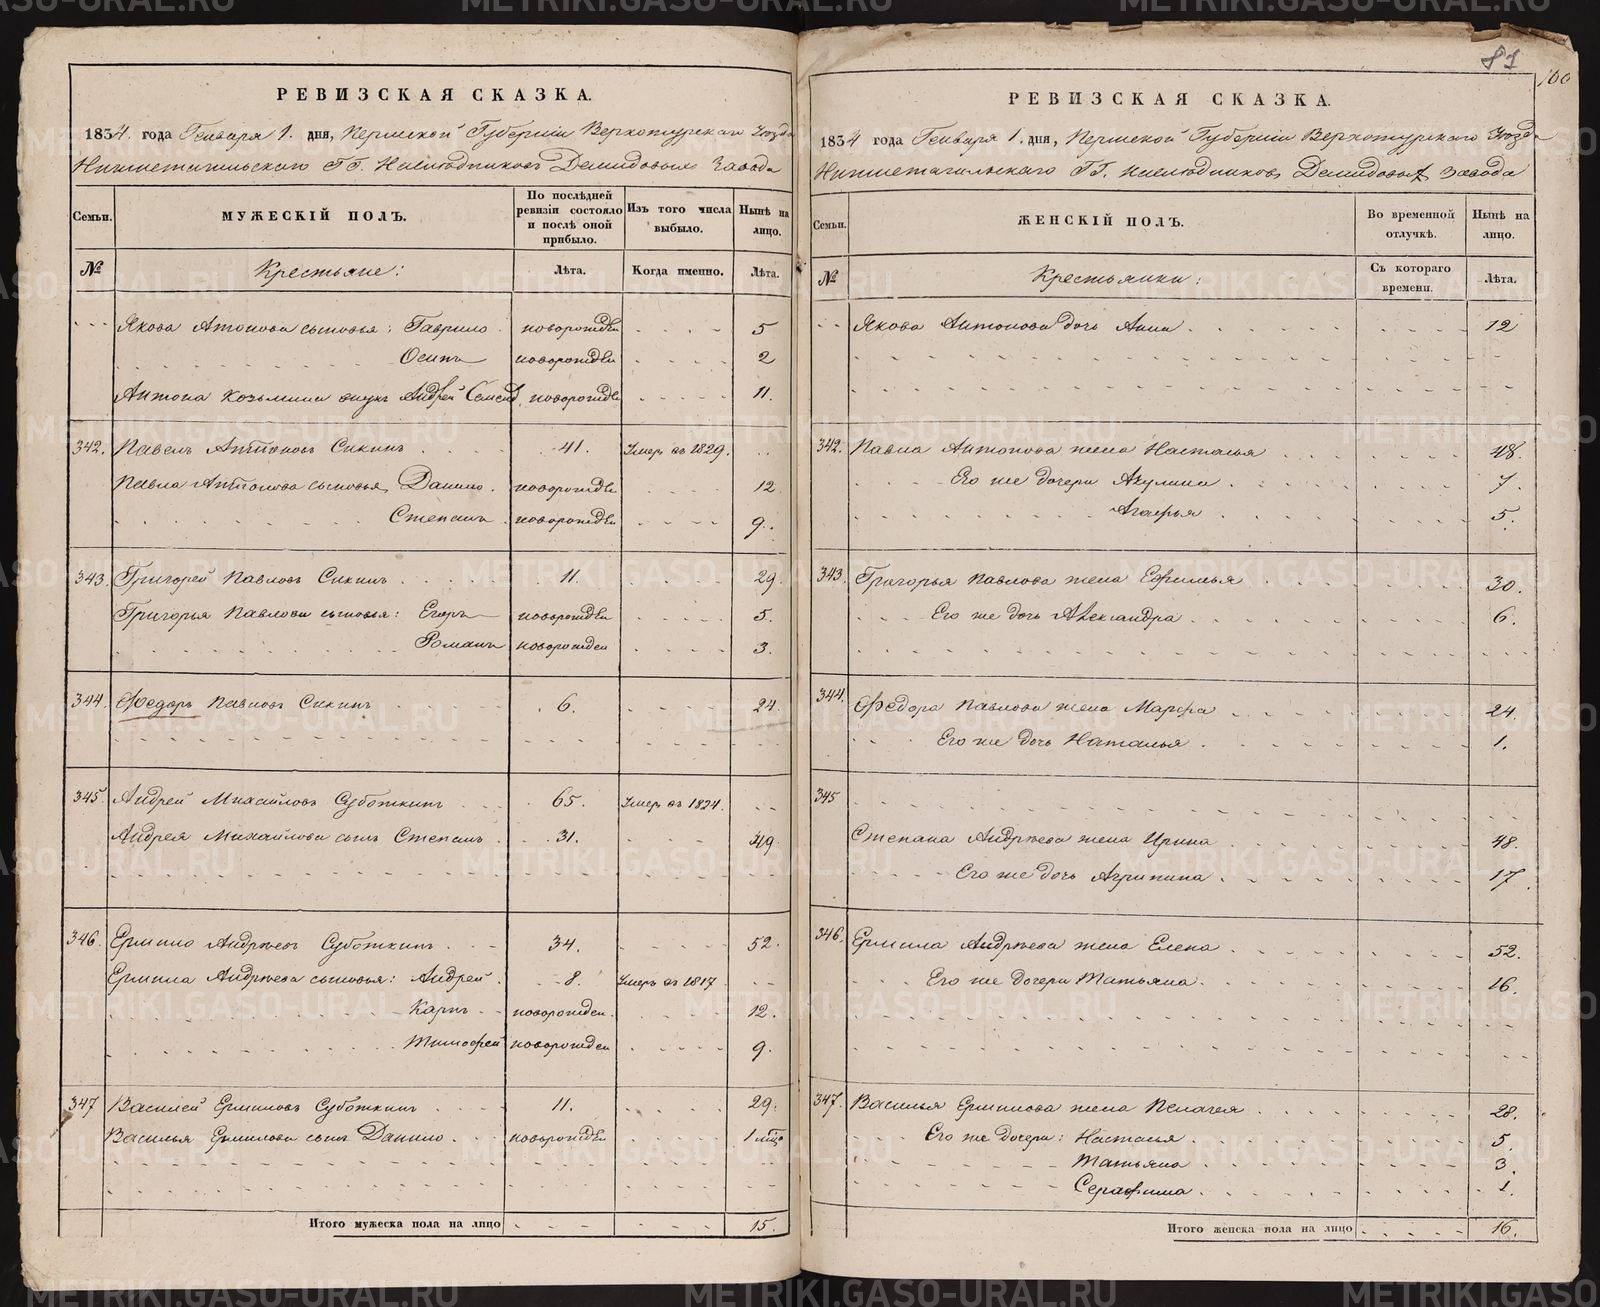 81
100
РЕВИЗСКАЯ СКАЗКА.
1834. года Генваря 1. дня, Пермской Губернiи Верхотурскаго Уѣзда
Нижнетагильскаго ГГ. Наслѣдниковъ Демидовыхъ Завода
Семьи. МУЖЕСКIЙ ПОЛЪ. По послѣдней ревизiи состояло и послѣ оной прибыло. Изъ того числа выбыло. Нынѣ на лицо.
№ Крестьяне: Лѣта. Когда именно. Лѣта.
Якова Антонова сыновья: Гаврило новорожден 5
Осипъ новорожден 2
Антона Козьмина внукъ Андрей новорожден 11.
342. Павелъ Антоновъ Сикинъ 41. Умеръ въ 1829.
Павла Антонова сыновья, Данило. новорожден 12
Степанъ новорожден 9.
343. Григорей Павловъ Сикинъ 11. 29.
Григорья Павлова сыновья: Егоръ новорожден 5.
Романъ новорожден 3.
344. Федоръ Павловъ Сикинъ 6. 24.
345. Андрей Михайловъ Суботкинъ 65. Умеръ въ 1824.
Андрея Михайлова сынъ Степанъ 31. 49
346. Ермило Андрѣевъ Суботкинъ 34. 52.
Ермила Андрѣева сыновья: Андрей 8. Умеръ въ 1817
Карпъ новорожден. 12.
Тимофей новорожден 9.
347 Василей Ермиловъ Суботкинъ 11. 29.
Василья Ермилова сынъ Данило новорожден 1
Итого мужеска пола на лицо 15.
РЕВИЗСКАЯ СКАЗКА.
1834 года Генваря 1. дня, Пермской Губернiи Верхотурскаго Уѣзда
Нижнетагильскаго ГГ. Наслѣдниковъ Демидовыхъ Завода
Семьи. ЖЕНСКIЙ ПОЛЪ. Во временной отлучкѣ. Нынѣ на лицо.
№ Крестьянки: Съ котораго времени. Лѣта.
Якова Антонова дочь Анна 12
342. Павла Антонова жена Настасья 48.
Его же дочери Акулина 7.
Агафья 5.
343. Григорья Павлова жена Ефимья 30.
Его же дочь Александра 6.
344. Федора Павлова жена Марфа 24.
Его же дочь Наталья 1.
345
Степана Андрѣева жена Ирина 48.
Его же дочь Агрипина 17.
346. Ермила Андрѣева жена Елена 52.
Его же дочери Татьяна 16.
347. Василья Ермилова жена Пелагея 28.
Его же дочери: Настасья 5.
Татьяна 3.
Серафима 1.
Итого женска пола на лицо 16.
METRIKI.GASO-URAL.RU